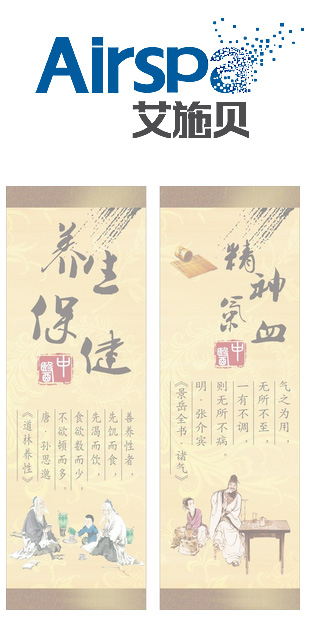 Airspa
艾施贝
养生
保健
中醫
善养性者，
先饥而食，
先渴而饮，
食欲数而少，
不欲顿而多。
唐·孙思邈
《道林养性》
精神
氣血
中醫
气之为用，
无所不至，
一有不调，
则无所不病。
明·张介宾
《景岳全书·诸气》